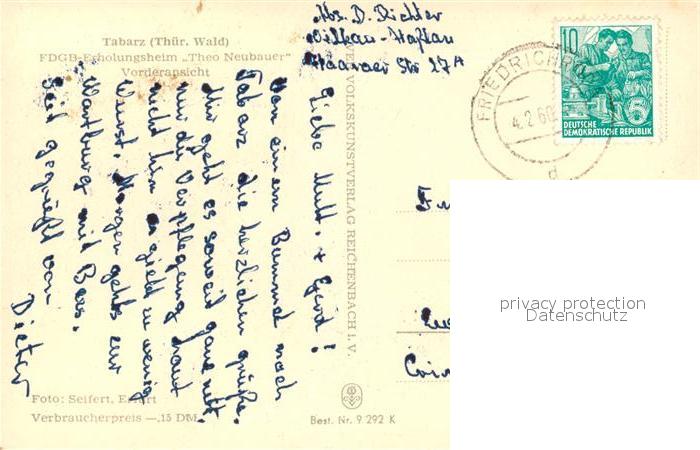 Abs. D. Richter
Wilkau-Haßlau
Haaraer Str 27A
Tabarz (Thür. Wald)
FDGB-Erholungsheim „Theo Neubauer"
Vorderansicht
Liebe Mutt. + Gerd!
Von einem Bummel nach
Tabarz die herzlichen Grüße.
Mir geht es soweit ganz nett.
nur die Verpflegung haut
nicht hin es giebt zu wenig
Wurst. Morgen gehts zur
Wartburg mit Bus.
Seid gegrüßt von
Dieter
VOLKSKUNSTVERLAG REICHENBACH i. V.
FRIEDRICHRO
4.2.60
d
10
5
DEUTSCHE
DEMOKRATISCHE REPUBLIK
privacy protection
Datenschutz
Foto: Seifert, Erfurt
Verbraucherpreis —,15 DM
Best. Nr. 9 292 K